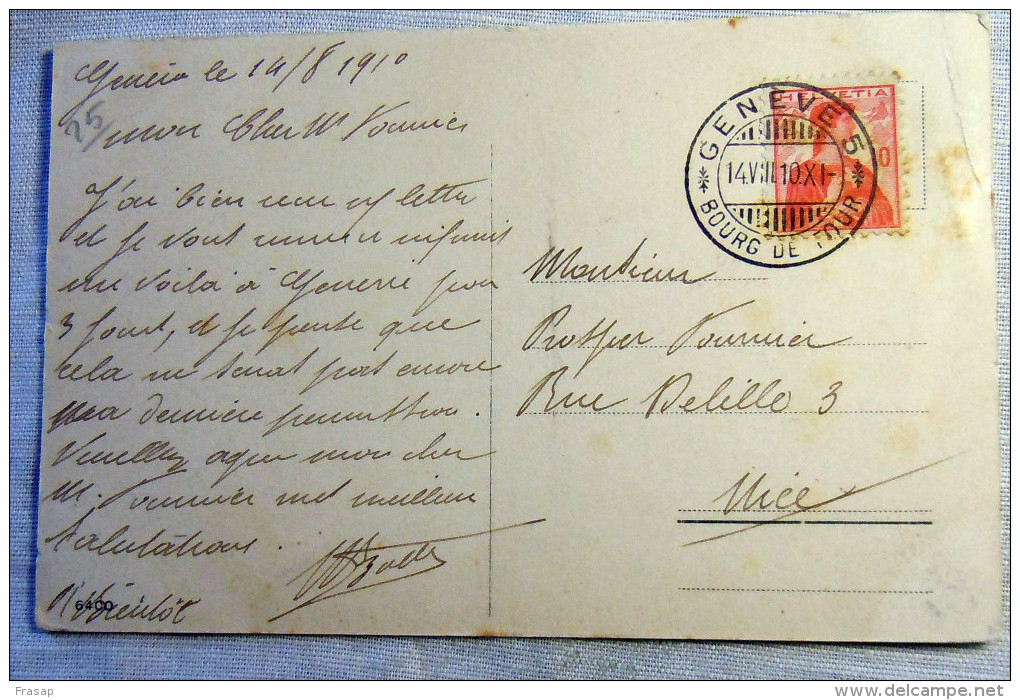 Genève le 14/8 1910
25/
mon Cher Mr Fournier
J'ai bien reçu lettre
et je
voilà à Genève pour
3 jours, et je pense que
cela ne sera pas encore
ma dernière permission.
Veuillez mon cher
M. Fournier mes meilleurs
Salutations.
A Bientôt
6400
HELVETIA
10
GENÈVE 5
14.VIII.10.XI-
BOURG DE FOUR
Monsieur
Prosper Fournier
Rue Delille 3
Nice
Frasap
www.delcampe.net